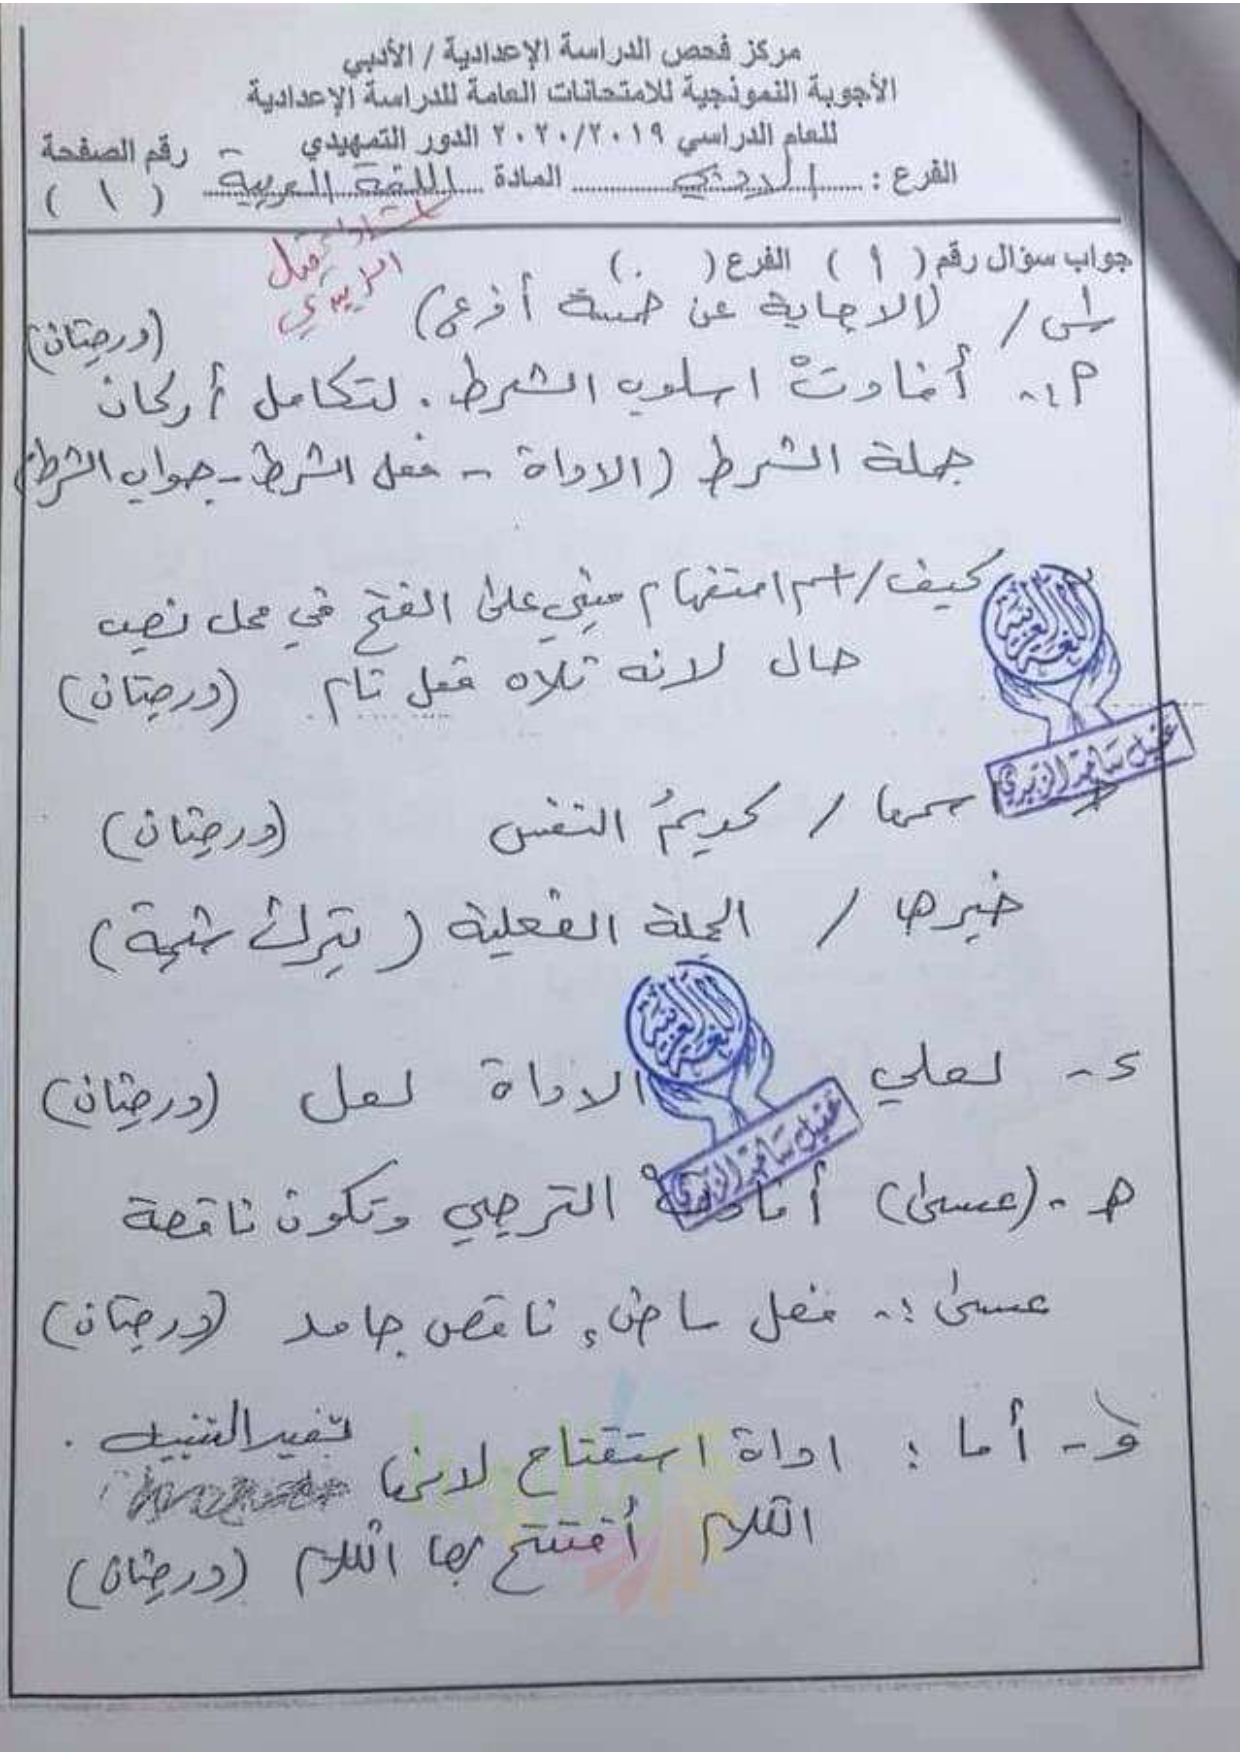 مركز فحص الدراسة الإعدادية / الأدبي
الأجوبة النموذجية للامتحانات العامة للدراسة الإعدادية
للعام الدراسي ٢٠٢٠/٢٠١٩ الدور التمهيدي
رقم الصفحة
الفرع : الادبي المادة اللغة العربية ( ١ )
عقيل
الزبيدي
جواب سؤال رقم ( ١ ) الفرع ( . )
س١ / (الاجابة عن خمسة أفرع) (درجتان)
أفادتْ اسلوب الشرط . لتكامل أركان
جملة الشرط (الاداة - فعل الشرط - جواب الشرط)
كيف / اسم استفهام مبني على الفتح في محل نصب
حال لانه تلاه فعل تام (درجتان)
اللغة العربية
عقيل سالم الزبيدي
اسمها / كريمُ النفس (درجتان)
خبرها / الجملة الفعلية ( يترك شيمة )
اللغة العربية
د - لعلي الاداة لعل (درجتان)
عقيل سالم الزبيدي
هـ - (عسى) أفادتْ الترجي وتكون ناقصة
عسى :- فعل ماضٍ ناقص جامد (درجتان)
و - أما : اداة استفتاح لانها تفيد التنبيه .
الكلام أفتتح بها الكلام (درجتان)